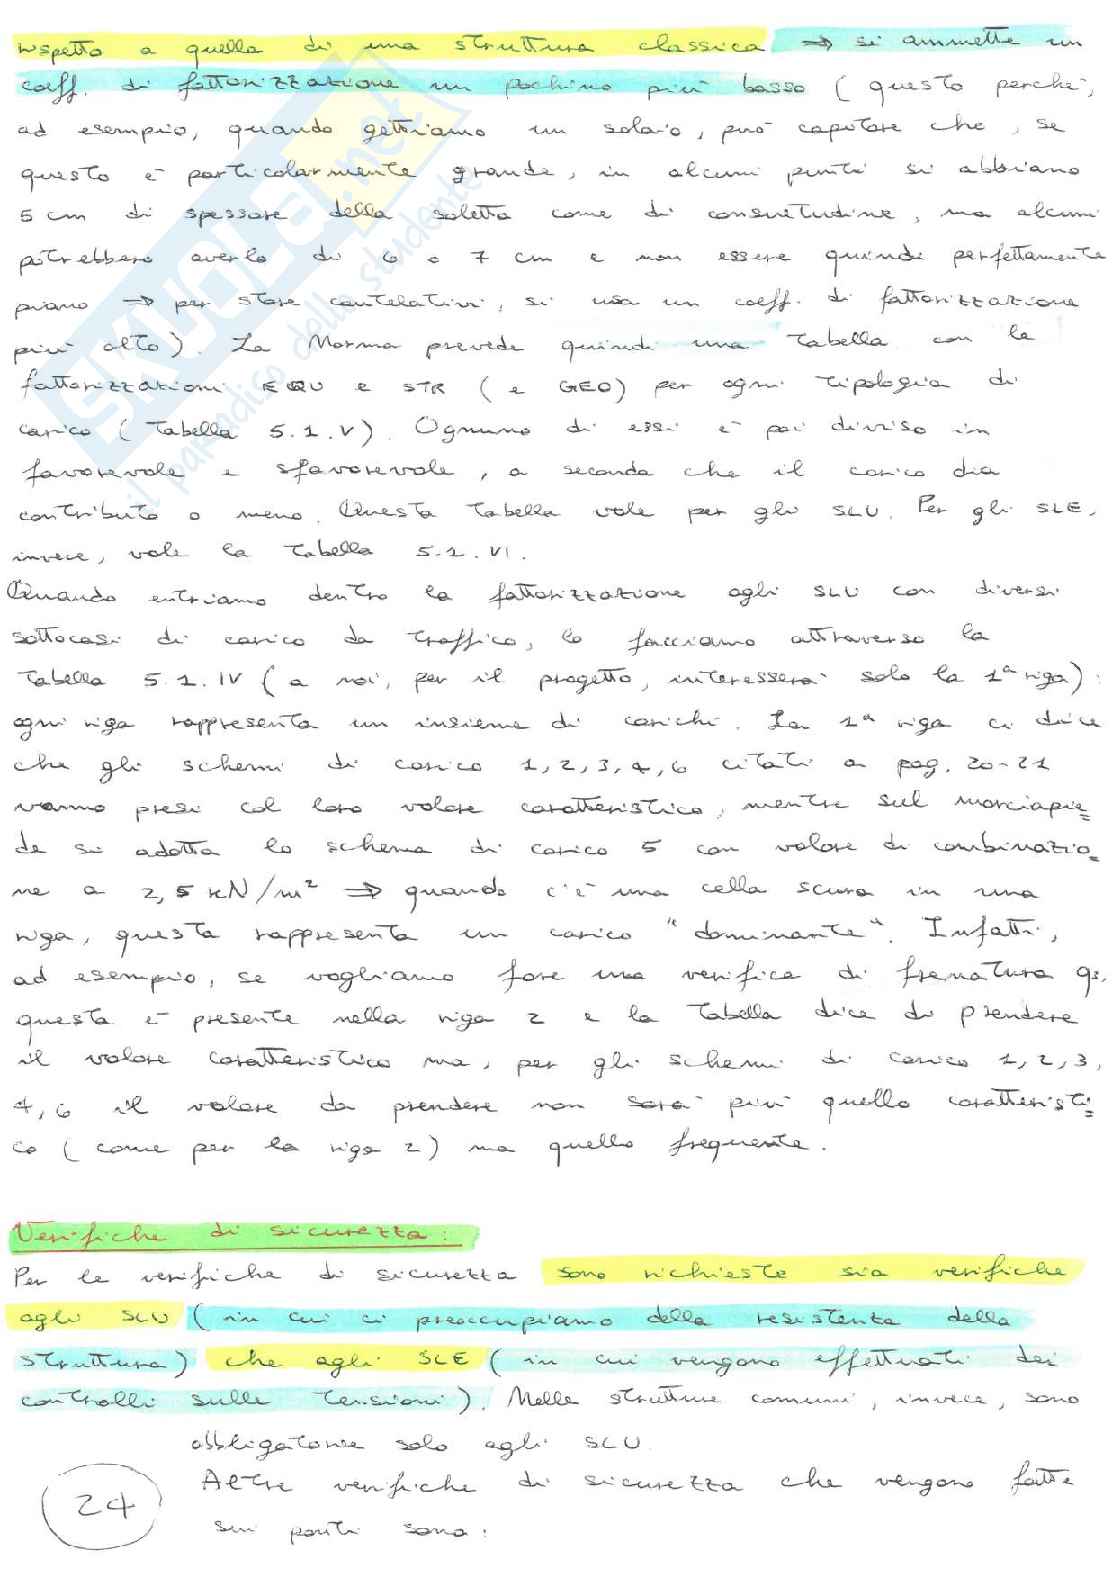 rispetto a quella di una struttura classica ⇒ si ammette un
coeff. di fattorizzazione un pochino più basso (questo perché,
ad esempio, quando gettiamo un solaio, può capitare che, se
questo è particolarmente grande, in alcuni punti si abbiano
5 cm di spessore della soletta come di consuetudine, ma alcuni
potrebbero averlo di 6 o 7 cm e non essere quindi perfettamente
piano → per stare cautelativi, si usa un coeff. di fattorizzazione
più alto). La Norma prevede quindi una Tabella con le
fattorizzazioni EQU e STR (e GEO) per ogni tipologia di
carico (Tabella 5.1.V). Ognuno di essi è poi diviso in
favorevole e sfavorevole, a seconda che il carico dia
contributo o meno. Questa Tabella vale per gli SLU. Per gli SLE,
invece, vale la Tabella 5.1.VI.
Quando entriamo dentro la fattorizzazione agli SLU con diversi
sottocasi di carico da traffico, lo facciamo attraverso la
Tabella 5.1.IV (a noi, per il progetto, interesserà solo la 1ª riga):
ogni riga rappresenta un insieme di carichi. La 1ª riga ci dice
che gli schemi di carico 1,2,3,4,6 citati a pag. 20-21
vanno presi col loro valore caratteristico, mentre sul marciapie=
de si adotta lo schema di carico 5 con valore di combinazio=
ne a 2,5 kN/m² ⇒ quando c'è una cella scura in una
riga, questa rappresenta un carico "dominante". Infatti,
ad esempio, se vogliamo fare una verifica di frenatura q3,
questa è presente nella riga 2 e la Tabella dice di prendere
il valore caratteristico ma, per gli schemi di carico 1,2,3,
4,6 il valore da prendere non sarà più quello caratteristi=
co (come per la riga 2) ma quello frequente.
Verifiche di sicurezza:
Per le verifiche di sicurezza sono richieste sia verifiche
agli SLU (in cui ci preoccupiamo della resistenza della
struttura) che agli SLE (in cui vengono effettuati dei
controlli sulle tensioni). Nelle strutture comuni, invece, sono
obbligatorie solo agli SLU.
Altre verifiche di sicurezza che vengono fatte
sui ponti sono:
24
SKUOLA.net
il paradiso dello studente